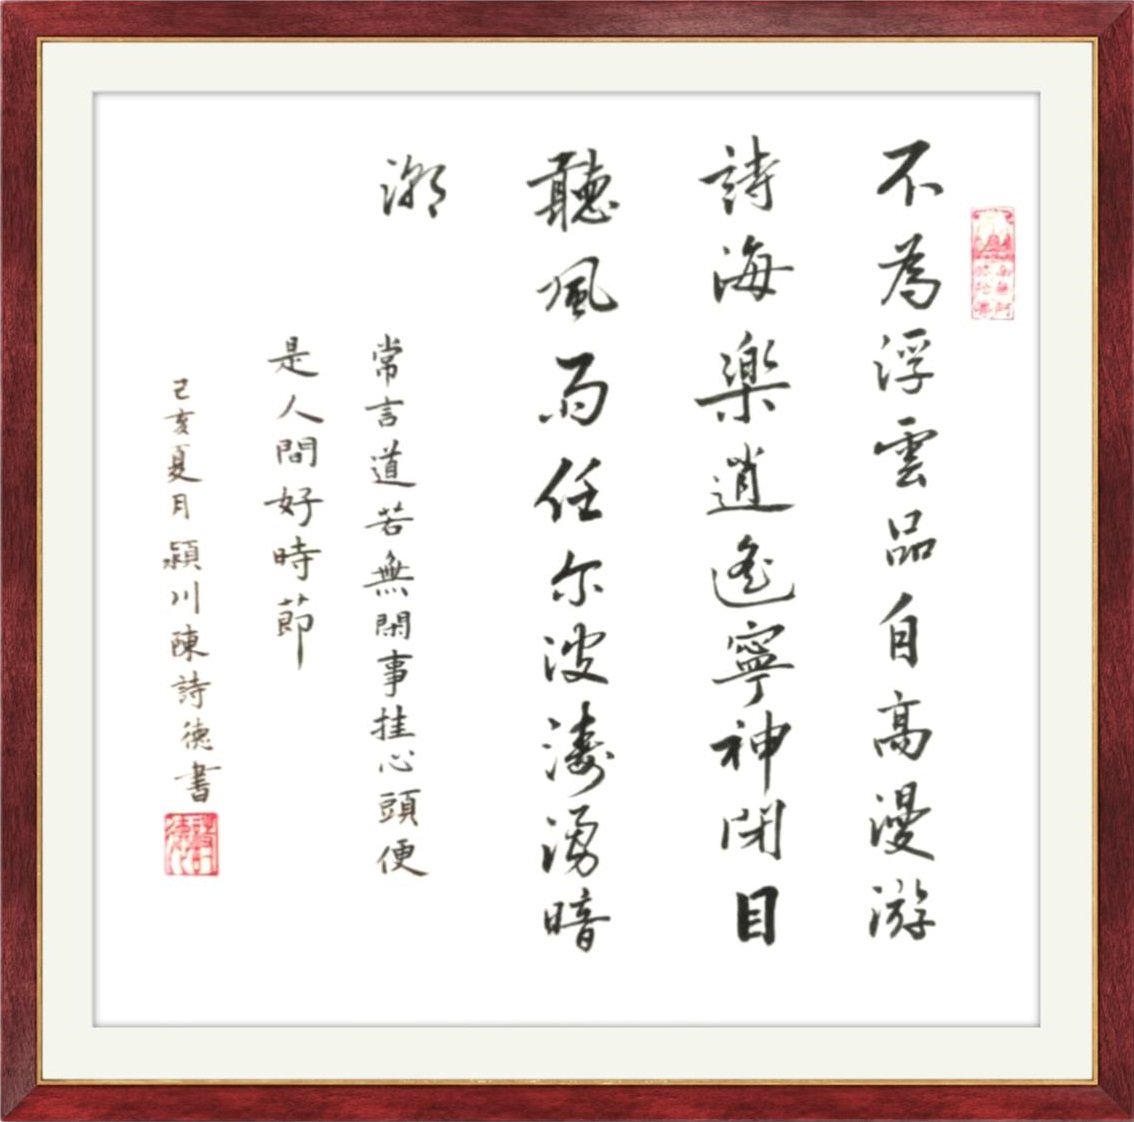 不為浮雲品自高漫游
詩海楽逍遙寧神閉目
聽風雨任尔波濤湧暗
潮
常言道若無閑事挂心頭便
是人間好時節
己亥夏月潁川陳詩德書